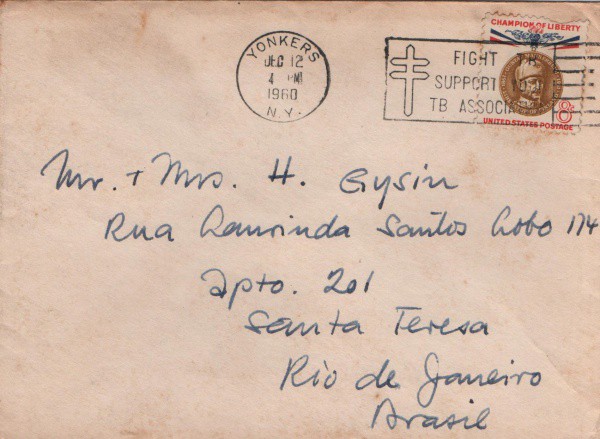 YONKERS
DEC 12
4 PM
1960
N.Y.
FIGHT TB
SUPPORT
TB ASSOCIA
CHAMPION OF LIBERTY
8¢
UNITED STATES POSTAGE
Mr. + Mrs. H. Gysin
Rua Laurinda Santos Lobo 174
Apto. 201
Santa Teresa
Rio de Janeiro
Brasil